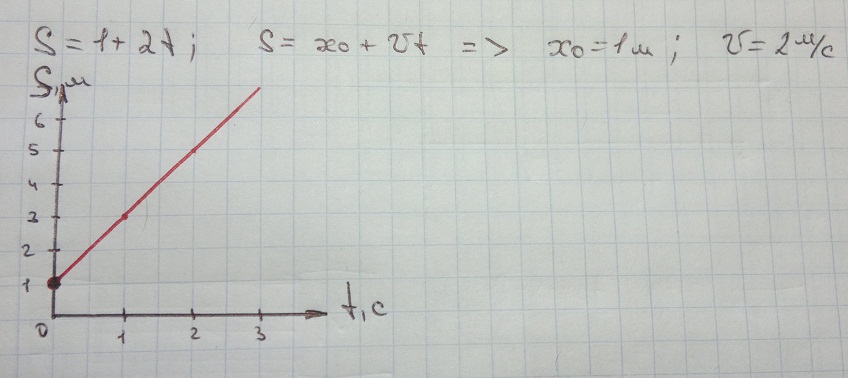 S = 1 + 2t ; S = x₀ + vt => x₀ = 1м ; v = 2 м/с
S, м
6
5
4
3
2
1
0
1 2 3
t, с